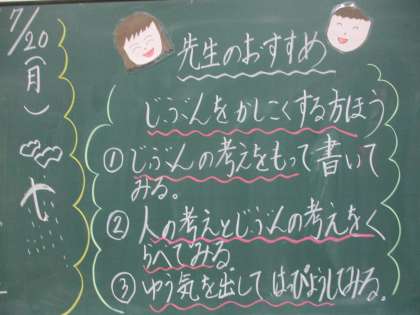 7/20(月)
先生のおすすめ
じぶんをかしこくする方ほう
①じぶんの考えをもって書いて
みる。
②人の考えとじぶんの考えをく
らべてみる
③ゆう気を出してはっぴょうしてみる。